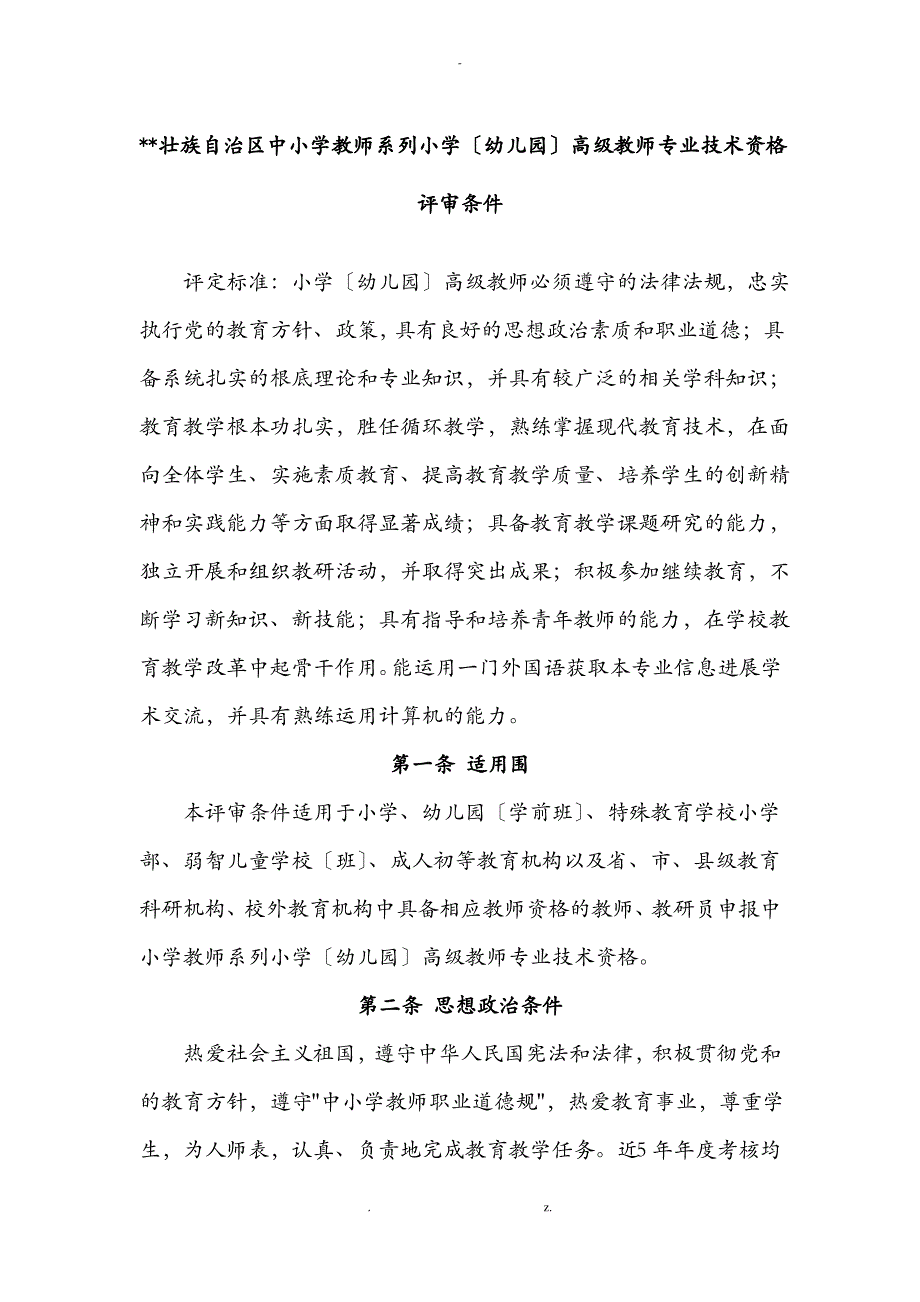 -
**壮族自治区中小学教师系列小学〔幼儿园〕高级教师专业技术资格
评审条件
评定标准：小学〔幼儿园〕高级教师必须遵守的法律法规，忠实
执行党的教育方针、政策，具有良好的思想政治素质和职业道德；具
备系统扎实的根底理论和专业知识，并具有较广泛的相关学科知识；
教育教学根本功扎实，胜任循环教学，熟练掌握现代教育技术，在面
向全体学生、实施素质教育、提高教育教学质量、培养学生的创新精
神和实践能力等方面取得显著成绩；具备教育教学课题研究的能力，
独立开展和组织教研活动，并取得突出成果；积极参加继续教育，不
断学习新知识、新技能；具有指导和培养青年教师的能力，在学校教
育教学改革中起骨干作用。能运用一门外国语获取本专业信息进展学
术交流，并具有熟练运用计算机的能力。
第一条 适用围
本评审条件适用于小学、幼儿园〔学前班〕、特殊教育学校小学
部、弱智儿童学校〔班〕、成人初等教育机构以及省、市、县级教育
科研机构、校外教育机构中具备相应教师资格的教师、教研员申报中
小学教师系列小学〔幼儿园〕高级教师专业技术资格。
第二条 思想政治条件
热爱社会主义祖国，遵守中华人民国宪法和法律，积极贯彻党和
的教育方针，遵守"中小学教师职业道德规"，热爱教育事业，尊重学
生，为人师表，认真、负责地完成教育教学任务。近5年年度考核均
. z.